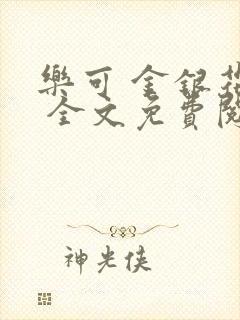 樂可 金銀花
全文免費閱
神光俠